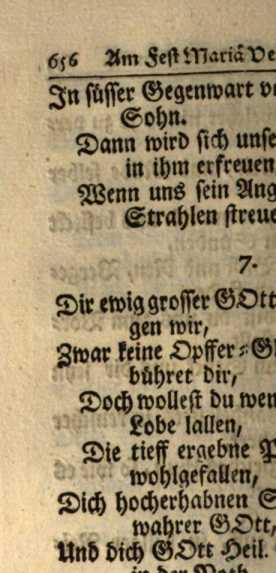 656 Am Fest Mariä Ve
In süsser Gegenwart v
Sohn.
Dann wird sich unse
in ihm erfreuen
Wenn uns sein Ang
Strahlen streue
7.
Dir ewig grosser GOtt
gen wir,
Zwar keine Opffer-Gl
bühret dir,
Doch wollest du wen
Lobe lallen,
Die tieff ergebne P
wohlgefallen,
Dich hocherhabnen S
wahrer GOtt,
Und dich GOtt Heil.
in der Noth